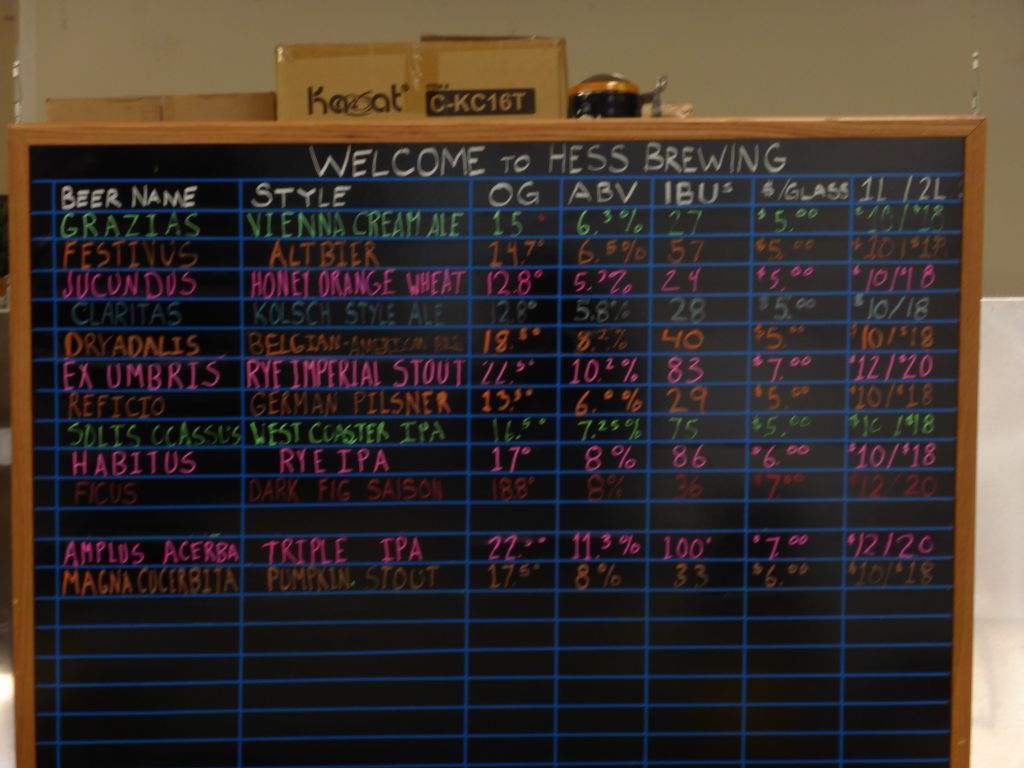 Karat
C-KC16T
WELCOME TO HESS BREWING
BEER NAME STYLE OG ABV IBUs $/GLASS 1L / 2L
GRAZIAS VIENNA CREAM ALE 15° 6.3% 27 $5.00 $10/$18
FESTIVUS ALTBIER 14.7° 6.5% 57 $5.00 $10/$18
JUCUNDUS HONEY ORANGE WHEAT 12.8° 24 $5.00 $10/$18
CLARITAS KOLSCH STYLE ALE 12.8° 5.8% 28 $5.00 $10/18
DRYADALIS BELGIAN- 8.2% 40 $5.00 $10/$18
EX UMBRIS RYE IMPERIAL STOUT 10.2% 83 $7.00 $12/$20
REFICIO GERMAN PILSNER 6.0% 29 $5.00 $10/$18
SOLIS OCASSUS WEST COASTER IPA 16.5° 7.25% 75 $5.00 $10/$18
HABITUS RYE IPA 17° 8% 86 $6.00 $10/$18
FICUS DARK FIG SAISON 18.8° 8% 36 $7.00 $12/20
AMPLUS ACERBA TRIPLE IPA 11.3% 100+ $7.00 $12/20
MAGNA CUCERBITA PUMPKIN STOUT 17.5° 8% 33 $6.00 $10/$18